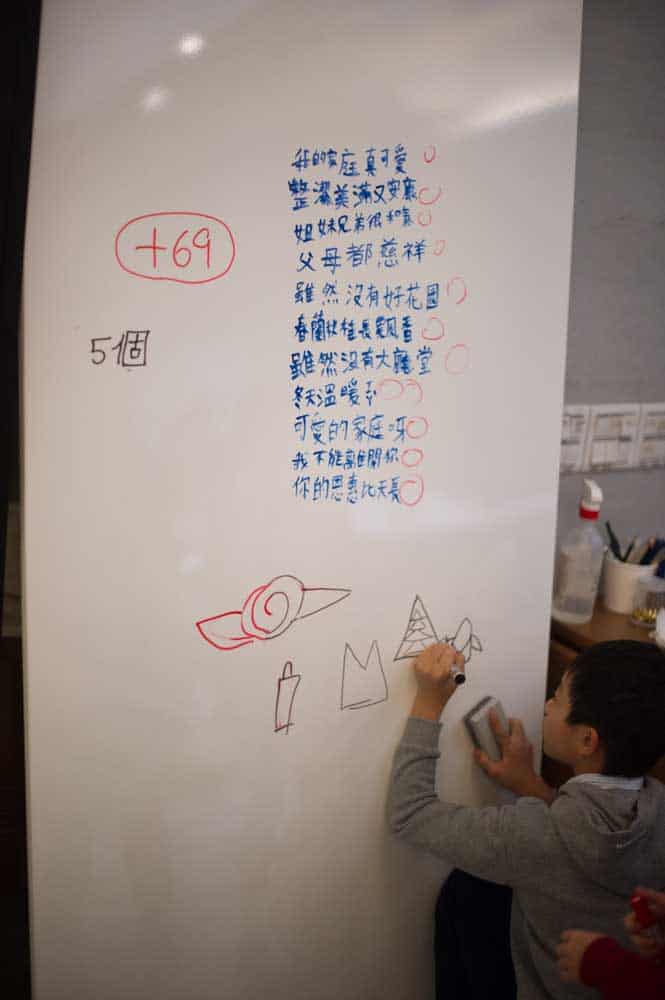 我的家庭真可愛
整潔美滿又安康
姐妹兄弟很和氣
父母都慈祥
+69
雖然沒有好花園
春蘭秋桂長飄香
5個
雖然沒有大廳堂
冬天溫暖
可愛的家庭呀
我不能離開你
你的恩惠比天長